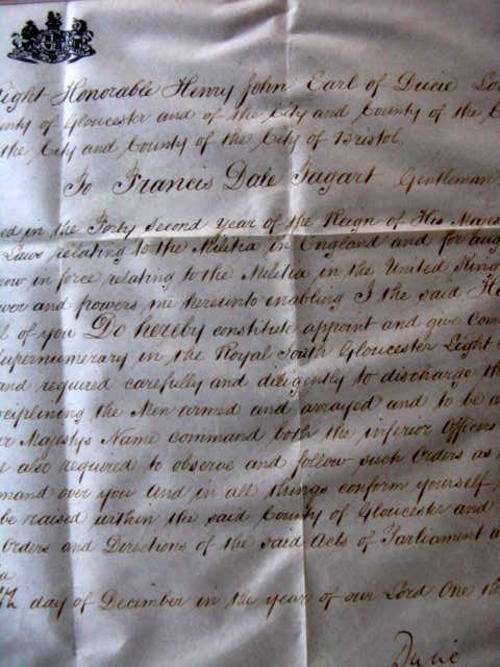 Right Honorable Henry John Earl of Ducie Lo
unty of Gloucester and of the City and County of the C
the City and County of the City of Bristol,
To Francis Dale Tagart Gentleman
ed in the Forty Second Year of the Reign of His Maj
Laws relating to the Militia in England and for aug
now in force relating to the Militia in the United King
wer and powers me thereunto enabling I the said H
l of you Do hereby constitute appoint and give Com
Supernumerary in the Royal South Gloucester Light
and required carefully and diligently to discharge th
sciplining the Men armed and arrayed and to be a
er Majestys Name command both the inferior Officers
e also required to observe and follow such Orders as
mand over you And in all things conform yourself
be raised within the said County of Gloucester and
Orders and Directions of the said Acts of Parliament a
day of December in the year of our Lord One th
Ducie